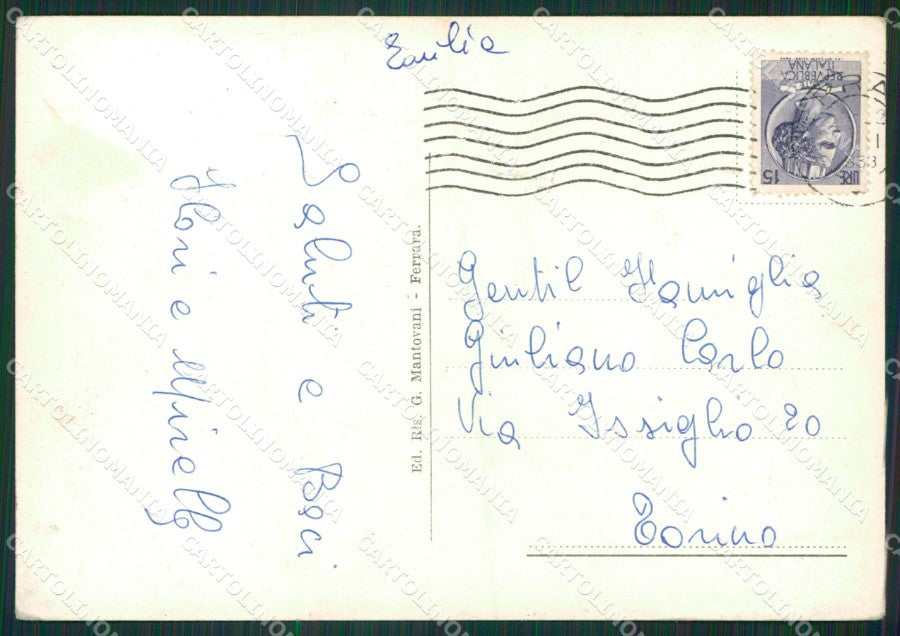 Emilia
Saluti e Baci
Flori e Mirella
Ed. Ris. G. Mantovani - Ferrara.
REPVBBLICA
ITALIANA
LIRE 15
Gentil Famiglia
Giuliano Carlo
Via Issiglio 20
Torino
CARTOLINOMANIA